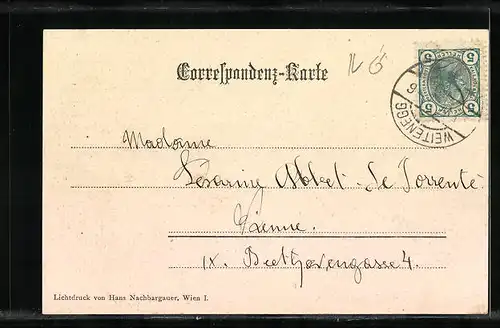 Correspondenz-Karte
5 5
5 5
WEITENEGG
Madame
Abbect-Le Torrenté
Vienne
IX. Beethovengasse 4.
Lichtdruck von Hans Nachbargauer, Wien I.